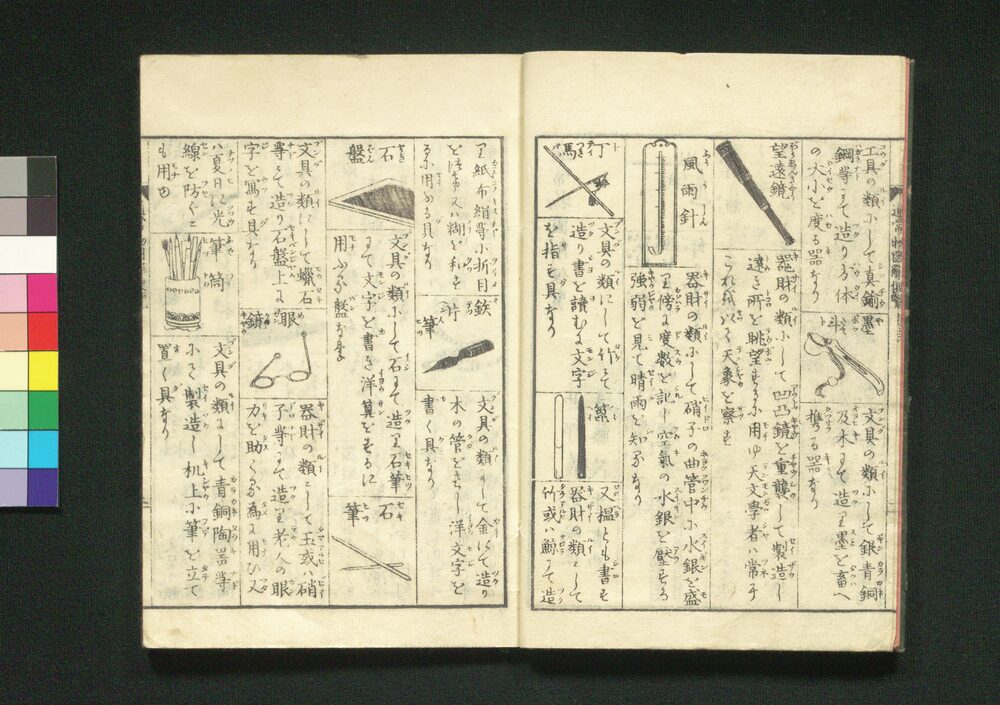 工具の類にして真鍮
鋼等にて造り分体
の大小を度る器なり
墨斗
文具の類にして銀青銅
及木にて造り墨を畜へ
携る器なり
望遠鏡
器財の類にして凹凸鏡を重襲して製造し
遠き所を眺望するに用ゆ天文學者ハ常に
これを以て天象を察す
風雨針
器財の類にして硝子の曲管中に水銀を盛
り傍に度数を記し空氣の水銀を壓する
強弱を見て晴雨を知るなり
丁馬
文具の類にして竹にて
造り書を讀むに文字
を指す具なり
又榲とも書す
器財の類にして
竹或ハ鯨にて造
り紙布絹等に折目
をつけ又ハ糊を和を
るに用ふる具なり
鉄筆
文具の類にして金にて造り
木の管をさし洋文字を
書く具なり
石盤
文具の類にして石にて造り石筆
にて文字を書き洋算をするに
用ふる盤なり
石筆
文具の類にして蝋石
等にて造り石盤上に
字を寫す具なり
眼鏡
器財の類にして玉或硝
子等にて造り老人の眼
力を助くる為に用ひ又
ハ夏日に光
線を防ぐに
も用ゆ
筆筒
文具の類にして青銅陶器等
にて製造し机上に筆を立て
置く具なり